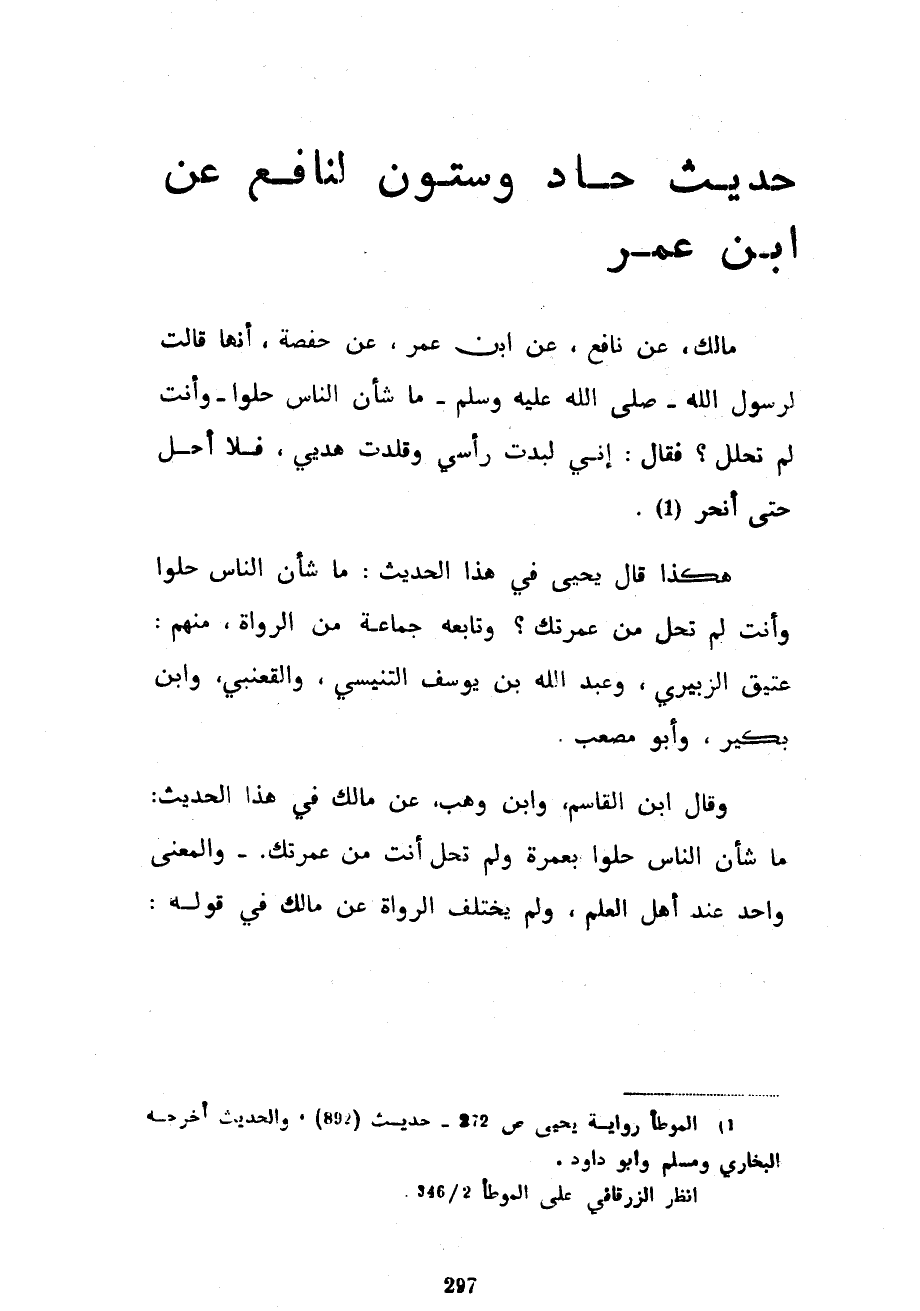 حديث حاد وستون لنافع عن
ابن عمر
مالك، عن نافع، عن ابن عمر، عن حفصة، أنها قالت
لرسول الله - صلى الله عليه وسلم - ما شأن الناس حلوا - وأنت
لم تحلل؟ فقال: إني لبدت رأسي وقلدت هديي، فلا أحل
حتى أنحر (1).
هكذا قال يحيى في هذا الحديث: ما شأن الناس حلوا
وأنت لم تحل من عمرتك؟ وتابعه جماعة من الرواة، منهم:
عتيق الزبيري، وعبد الله بن يوسف التنيسي، والقعنبي، وابن
بكير، وأبو مصعب.
وقال ابن القاسم، وابن وهب، عن مالك في هذا الحديث:
ما شأن الناس حلوا بعمرة ولم تحل أنت من عمرتك. - والمعنى
واحد عند أهل العلم، ولم يختلف الرواة عن مالك في قوله:
1) الموطأ رواية يحيى ص 272 - حديث (892) • والحديث أخرجه
البخاري ومسلم وأبو داود.
انظر الزرقاني على الموطأ 2/346.
297